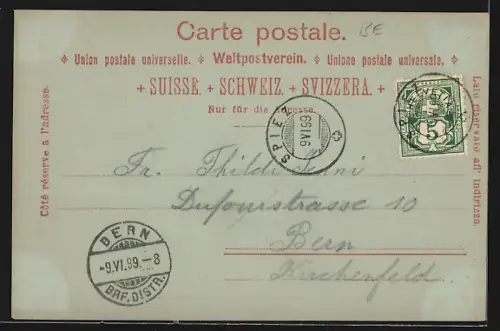 Carte postale.
BE
Union postale universelle. Weltpostverein. Unione postale universale.
+ SUISSE. + SCHWEIZ. + SVIZZERA. +
Nur für die Adresse.
Côté réservé à l'adresse.
Lato riservato all' indirizzo.
SPIEZ
9 VI 99
HELVETIA
Fr. Thildi Jenni
Dufourstrasse 10
Bern
Kirchenfeld.
BERN
-9.VI.99.-8
BRF. DISTR.